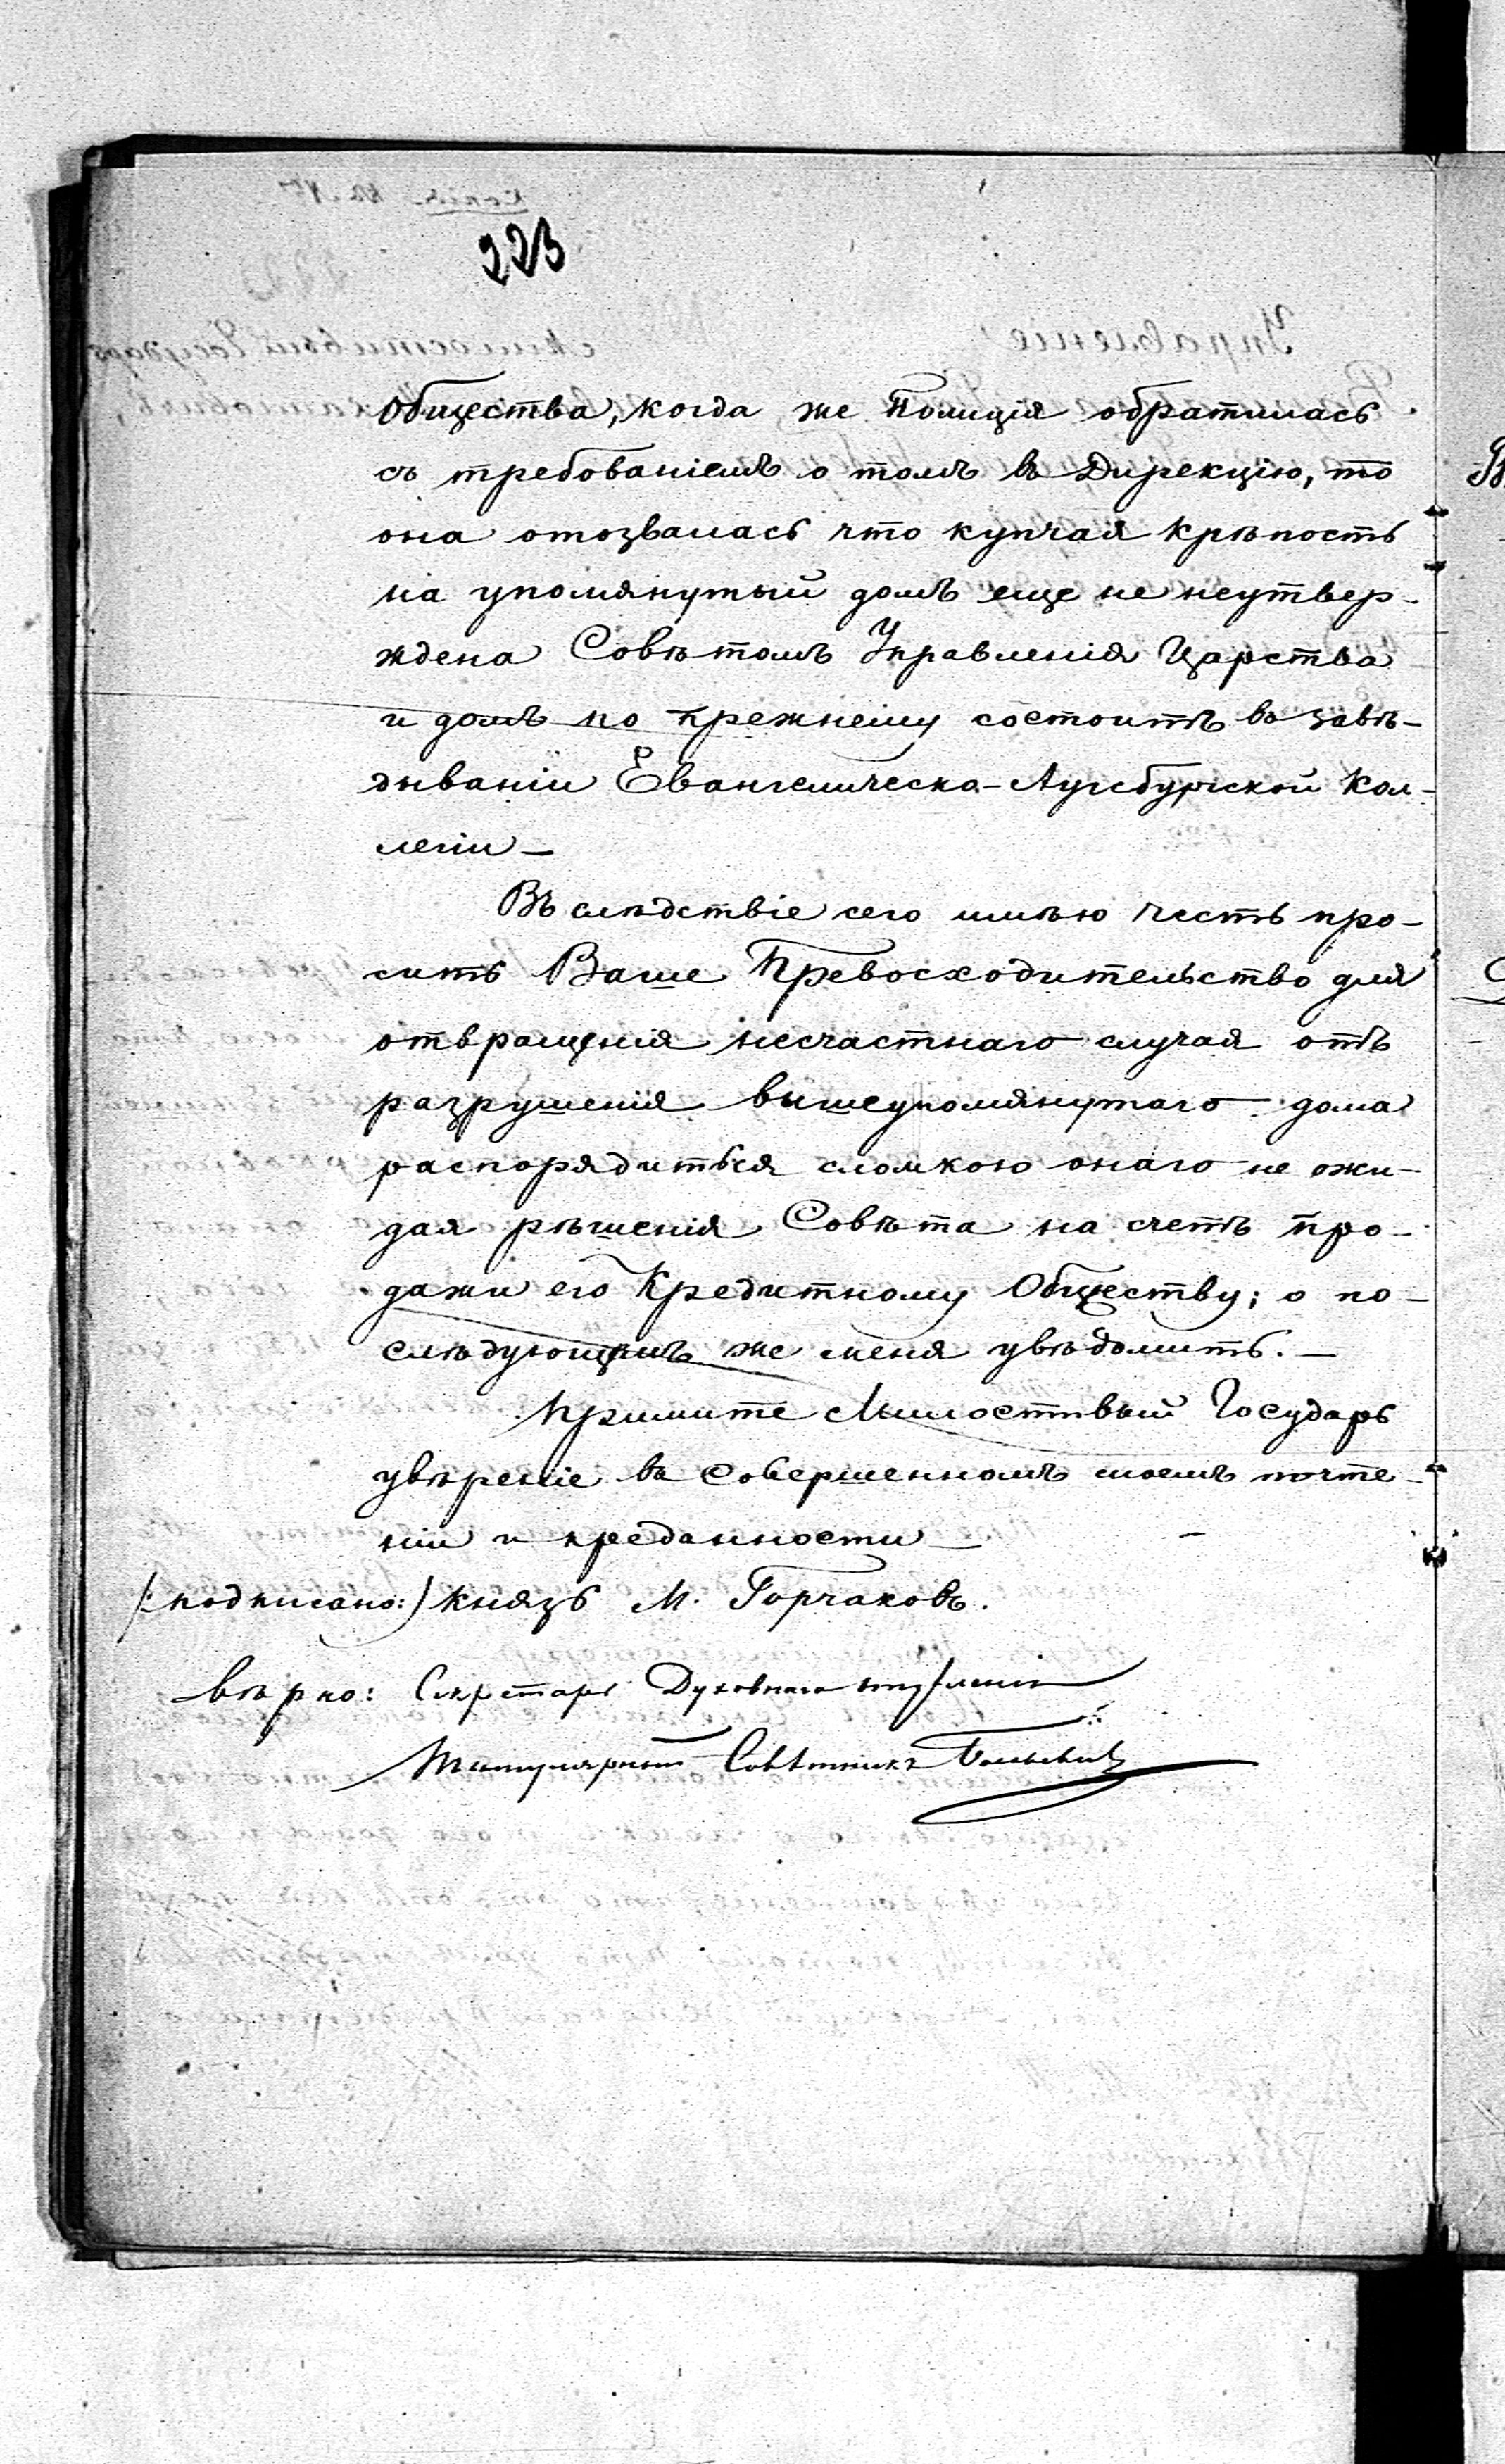 223
Общества, когда же Полиція обратилась
съ требованіемъ о томъ въ Дирекцію, то
она отозвалась что купчая крѣпость
на упомянутый домъ еще не неутвер-
ждена Совѣтомъ Управленія Царства
и домъ по прежнему состоитъ въ завѣ-
дываніи Евангелическо-Аугсбургской Кол-
легіи —
Въ слѣдствіе сего имѣю честь про-
сить Ваше Превосходительство для
отвращенія несчастнаго случая отъ
разрушенія вышеупомянутаго дома
распорядиться сломкою онаго не ожи-
дая рѣшенія Совѣта на счетъ про-
дажи его Кредитному Обществу; о по-
слѣдующемъ же меня увѣдомить. —
Примите Милостивый Государь
увѣреніе въ совершенномъ моемъ почте-
ніи и преданности —
/: подписано:) Князь М. Горчаковъ.
Вѣрно: Секретарь Духовнаго
Титулярный Совѣтникъ